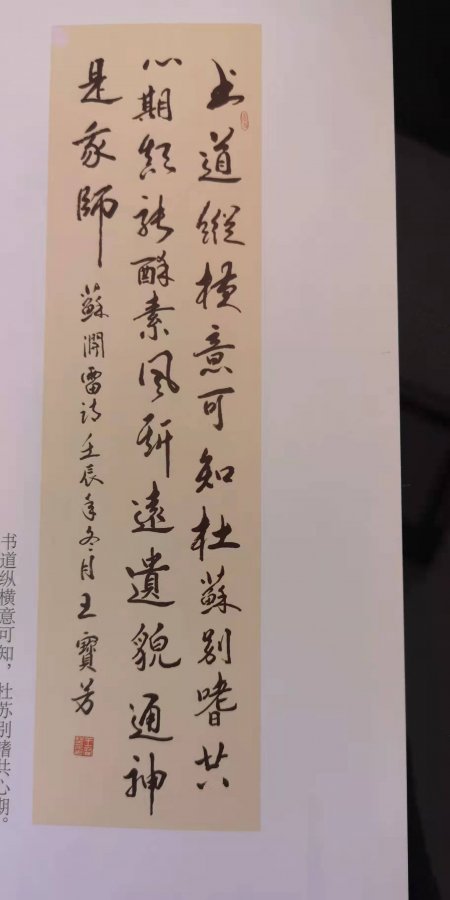 书道縱橫意可知杜蘇別嗜共
心期顛張醉素風斯遠遺貌通神
是我師
蘇渊雷詩壬辰年冬月王寶芳
书道纵横意可知，杜苏别嗜共心期。